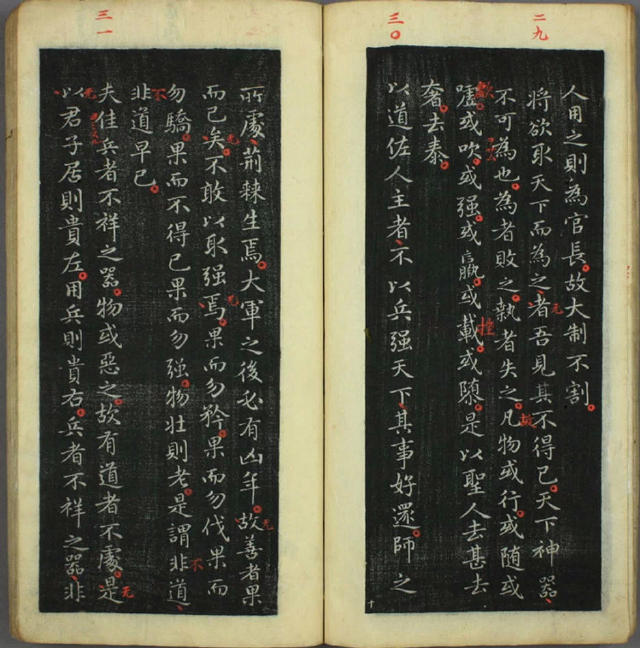 二九
人用之則為官長故大制不割
將欲取天下而為之者吾見其不得已天下神器
不可為也為者敗之執者失之凡物或行或随或
噓或吹或强或羸或載或隳是以聖人去甚去
奢去泰
三〇
以道佐人主者不以兵强天下其事好還師之
所處荆棘生焉大軍之後必有凶年故善者果
而已矣不敢以取强焉果而勿矜果而勿伐果而
勿驕果而不得已果而勿强物壯則老是謂非道
非道早已
三一
夫佳兵者不祥之器物或惡之故有道者不處是
以君子居則貴左用兵則貴右兵者不祥之器非